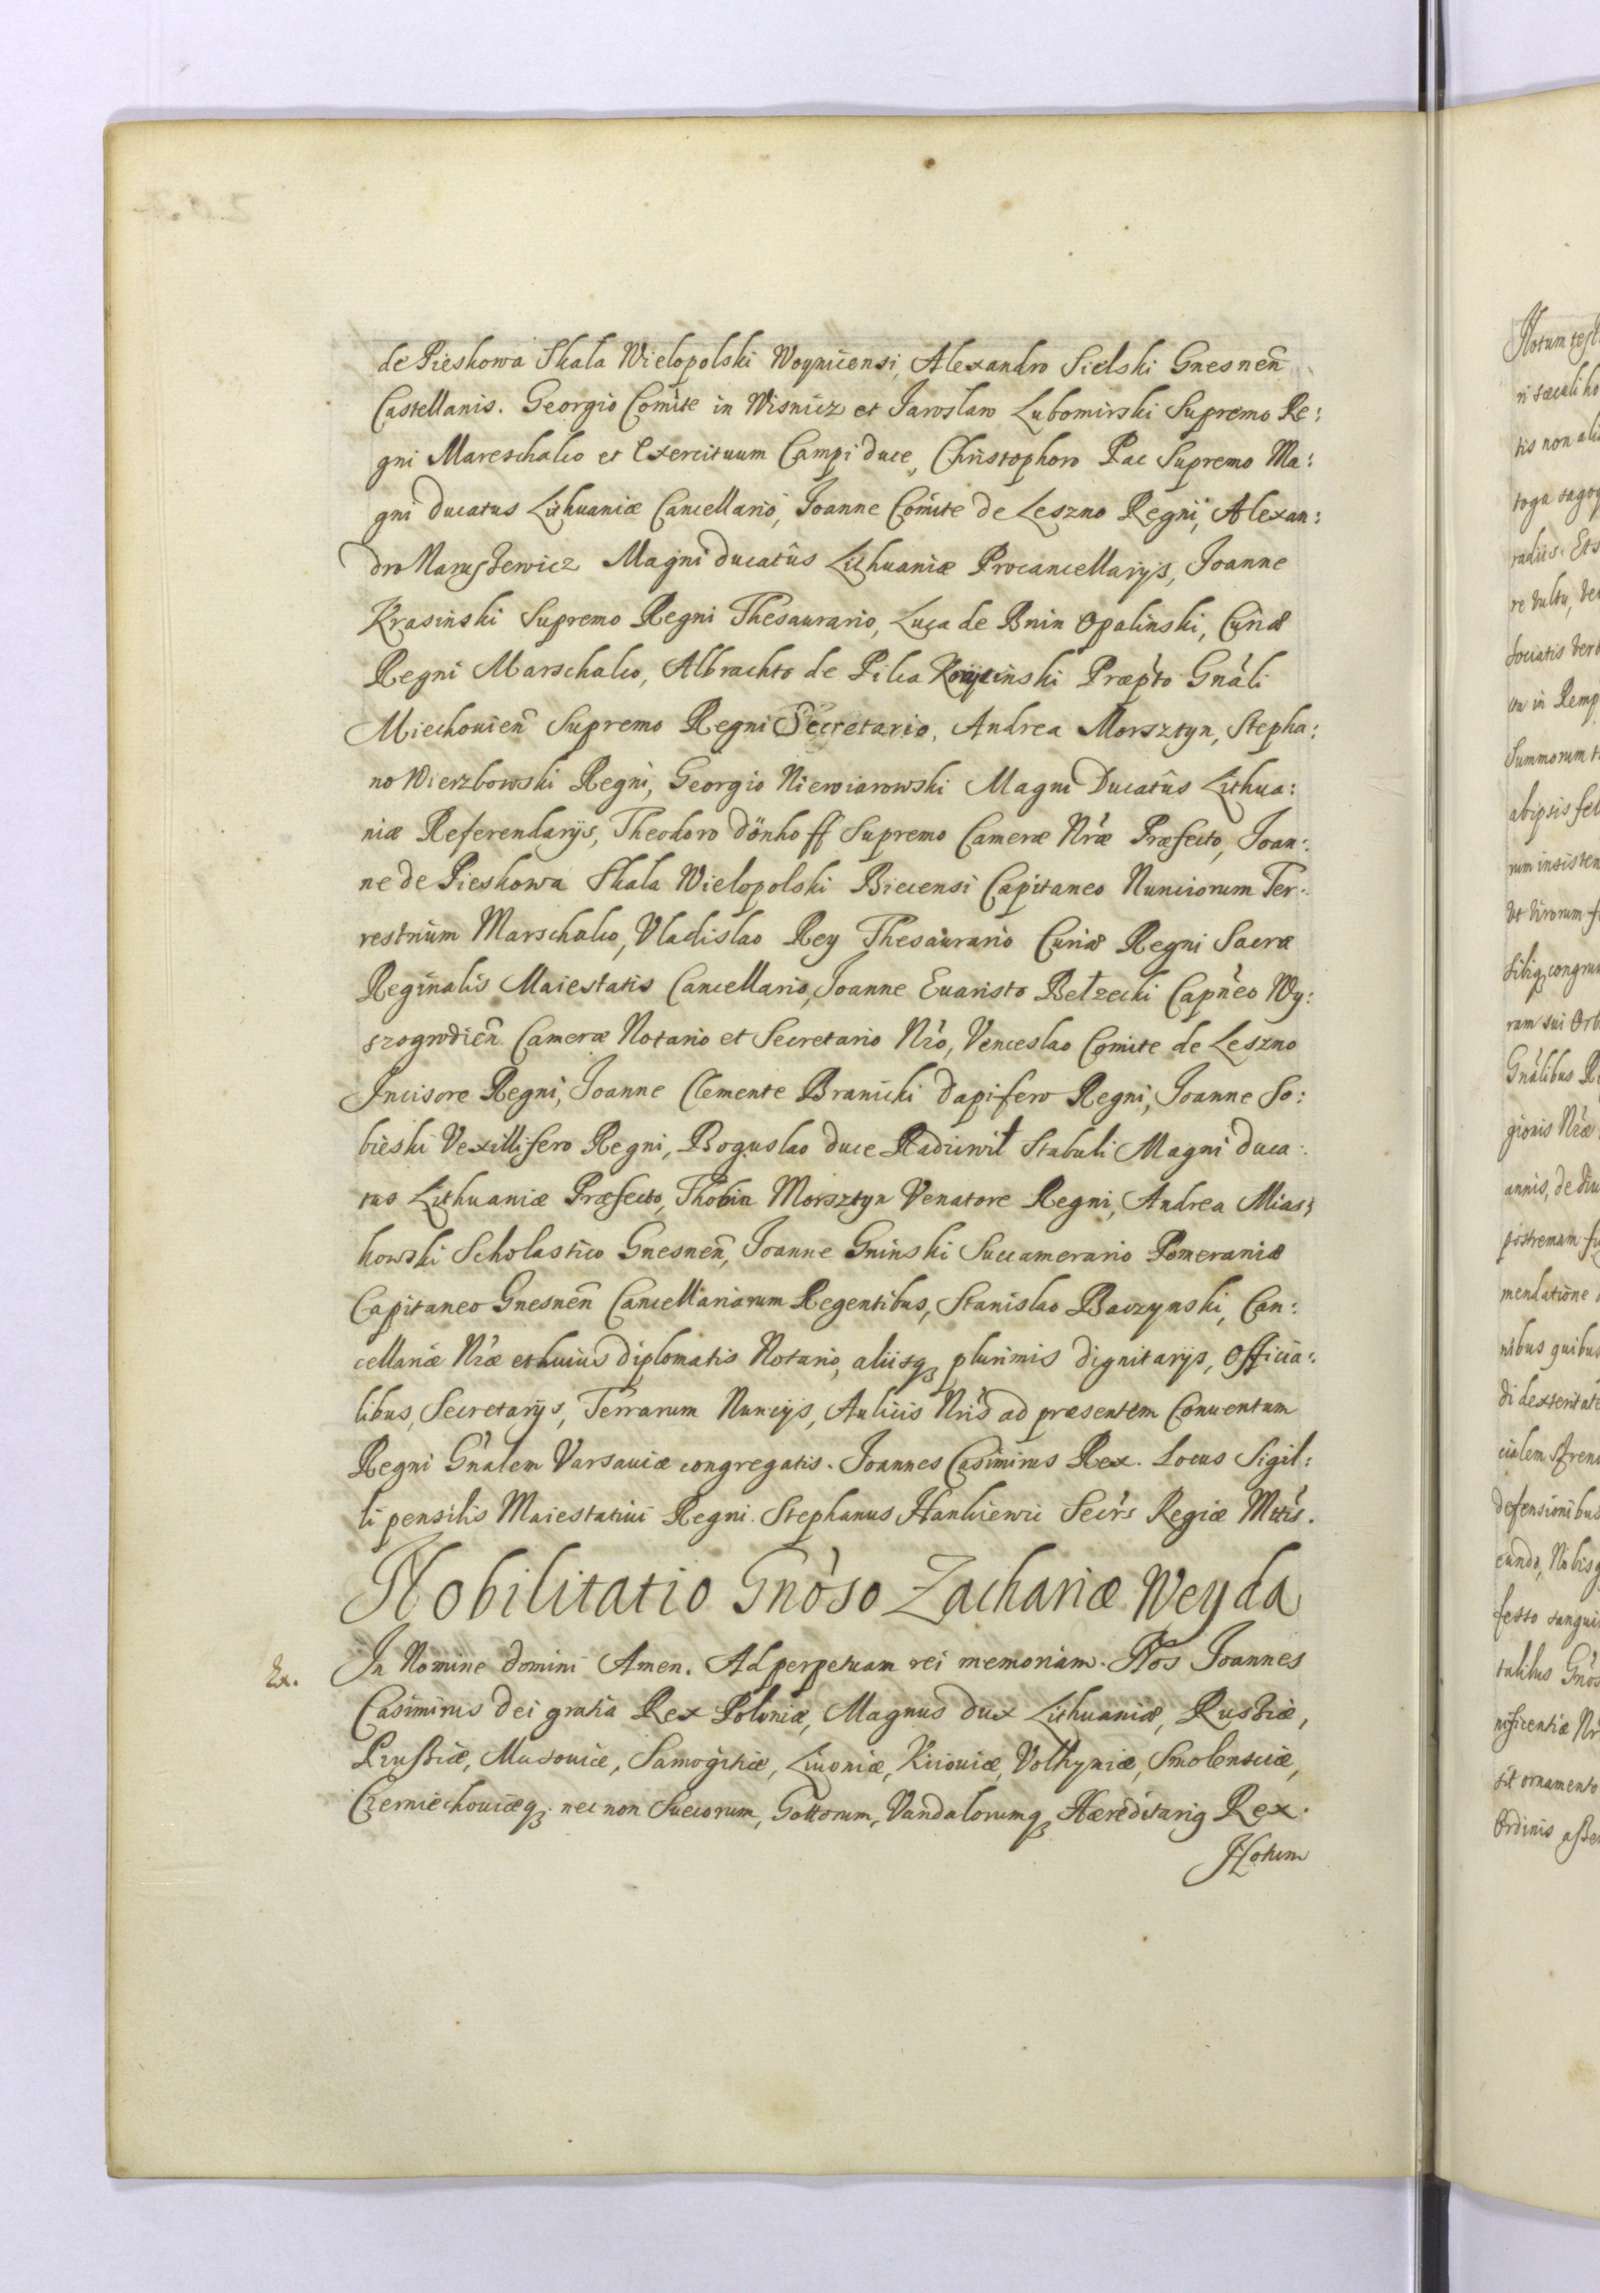 de Pieskowa Skala Wielopolski Woynicensi, Alexandro Sielski Gnesneñ
Castellanis. Georgio Comite in Wisnicz et Jaroslaw Lubomirski Supremo Re:
gni Mareschalco et Exercituum Campi duce, Christophoro Pac Supremo Ma:
gni Ducatus Lithuaniæ Cancellario, Joanne Comite de Leszno Regni, Alexan:
dro Naruszewicz Magni Ducatûs Lithuaniæ Procancellarijs, Joanne
Krasinski Supremo Regni Thesaurario, Luca de Bnin Opalinski, Curiæ
Regni Marschalco, Albrachto de Pilca Korycinski Præpto Gnàli
Miechovieñ Supremo Regni Secretario, Andrea Morsztyn, Stepha:
no Wierzbowski Regni, Georgio Niewiarowski Magni Ducatûs Lithua:
niæ Referendarijs, Theodoro Dönhoff Supremo Cameræ Nræ Præfecto, Joan:
ne de Pieskowa Skala Wielopolski Biecensi Capitaneo Nunciorum Ter:
restrium Marschalco, Vladislao Rey Thesaurario Curiæ Regni Sacræ
Reginalis Maiestatis Cancellario, Joanne Evaristo Bełzecki Capneo Wy:
szogrodieñ Cameræ Notario et Secretario Nrò, Venceslao Comite de Leszno
Incisore Regni, Joanne Clemente Branicki Dapifero Regni, Joanne So:
bieski Vexillifero Regni, Boguslao duce Radziwił Stabuli Magni Duca:
tus Lithuaniæ Præfecto, Thobia Morsztyn Venatore Regni, Andrea Mias:
kowski Scholastico Gnesneñ, Joanne Gninski Succamerario Pomeraniæ
Capitaneo Gnesneñ Cancellariarum Regentibus, Stanislao Baczynski, Can:
cellariæ Nræ et huius diplomatis Notario, aliisq; plurimis dignitarijs, Officia:
libus, Secretarijs, Terrarum Nuncijs, Aulicis Nris ad præsentem Conventum
Regni Gnàlem Varsaviæ congregatis. Joannes Casimirus Rex. Locus Sigil:
li pensilis Maiestativi Regni. Stephanus Hankiewic Secrs Regiæ Mttis.
Nobilitatio Gnòso Zachariæ Weyda
Ex.
In Nomine Domini Amen. Ad perpetuam rei memoriam. Nos Joannes
Casimirus Dei gratia Rex Poloniæ, Magnus Dux Lithuaniæ, Russiæ,
Prussiæ, Masoviæ, Samogitiæ, Livoniæ, Kiioviæ, Volhyniæ, Smolensciæ,
Czerniechoviæq; nec non Suecorum, Gottorum, Vandalorumq; Hæreditarig Rex.
Notum
Notum test
ri sæculi ho
tis non ali
toga sagoq
radiis. Ets
re vultu, ve
sociatis verb
en in Remp
Summorum
ab ipsis fel
rum insisten
ut virorum
sibiq; congru
ram sui Orb
Gnàlibus R
gionis Nræ
annis, de
postremam
mendatione
nibus quibus
di dexteritate
cialem stren
defensionibus
Nobisq
festo sangui
talibus Gnòs
nificentiæ Nr
sit ornamento
Ordinis asse